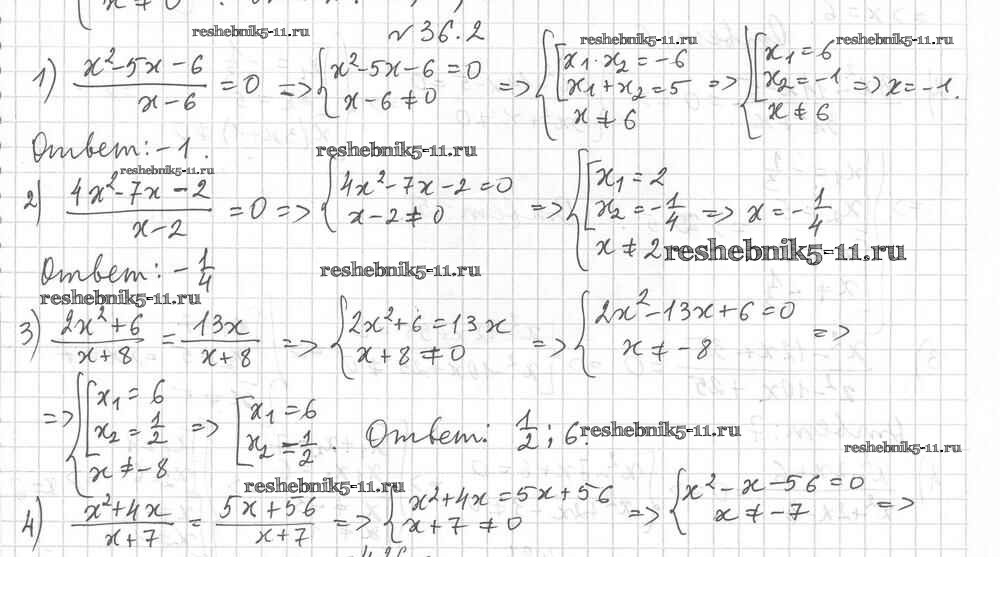 x ≠ 0
reshebnik5-11.ru № 36.2 reshebnik5-11.ru reshebnik5-11.ru
1) (x² - 5x - 6)/(x - 6) = 0 => { x² - 5x - 6 = 0; x - 6 ≠ 0 => { [ x₁ · x₂ = -6; x₁ + x₂ = 5; x ≠ 6 => { [ x₁ = 6; x₂ = -1; x ≠ 6 => x = -1.
Ответ: -1. reshebnik5-11.ru
reshebnik5-11.ru
2) (4x² - 7x - 2)/(x - 2) = 0 => { 4x² - 7x - 2 = 0; x - 2 ≠ 0 => { [ x₁ = 2; x₂ = -1/4; x ≠ 2 => x = -1/4
reshebnik5-11.ru
Ответ: -1/4 reshebnik5-11.ru
reshebnik5-11.ru
3) (2x² + 6)/(x + 8) = 13x/(x + 8) => { 2x² + 6 = 13x; x + 8 ≠ 0 => { 2x² - 13x + 6 = 0; x ≠ -8 =>
=> { [ x₁ = 6; x₂ = 1/2; x ≠ -8 => [ x₁ = 6; x₂ = 1/2. Ответ: 1/2; 6. reshebnik5-11.ru
reshebnik5-11.ru
reshebnik5-11.ru
4) (x² + 4x)/(x + 7) = (5x + 56)/(x + 7) => { x² + 4x = 5x + 56; x + 7 ≠ 0 => { x² - x - 56 = 0; x ≠ -7 =>